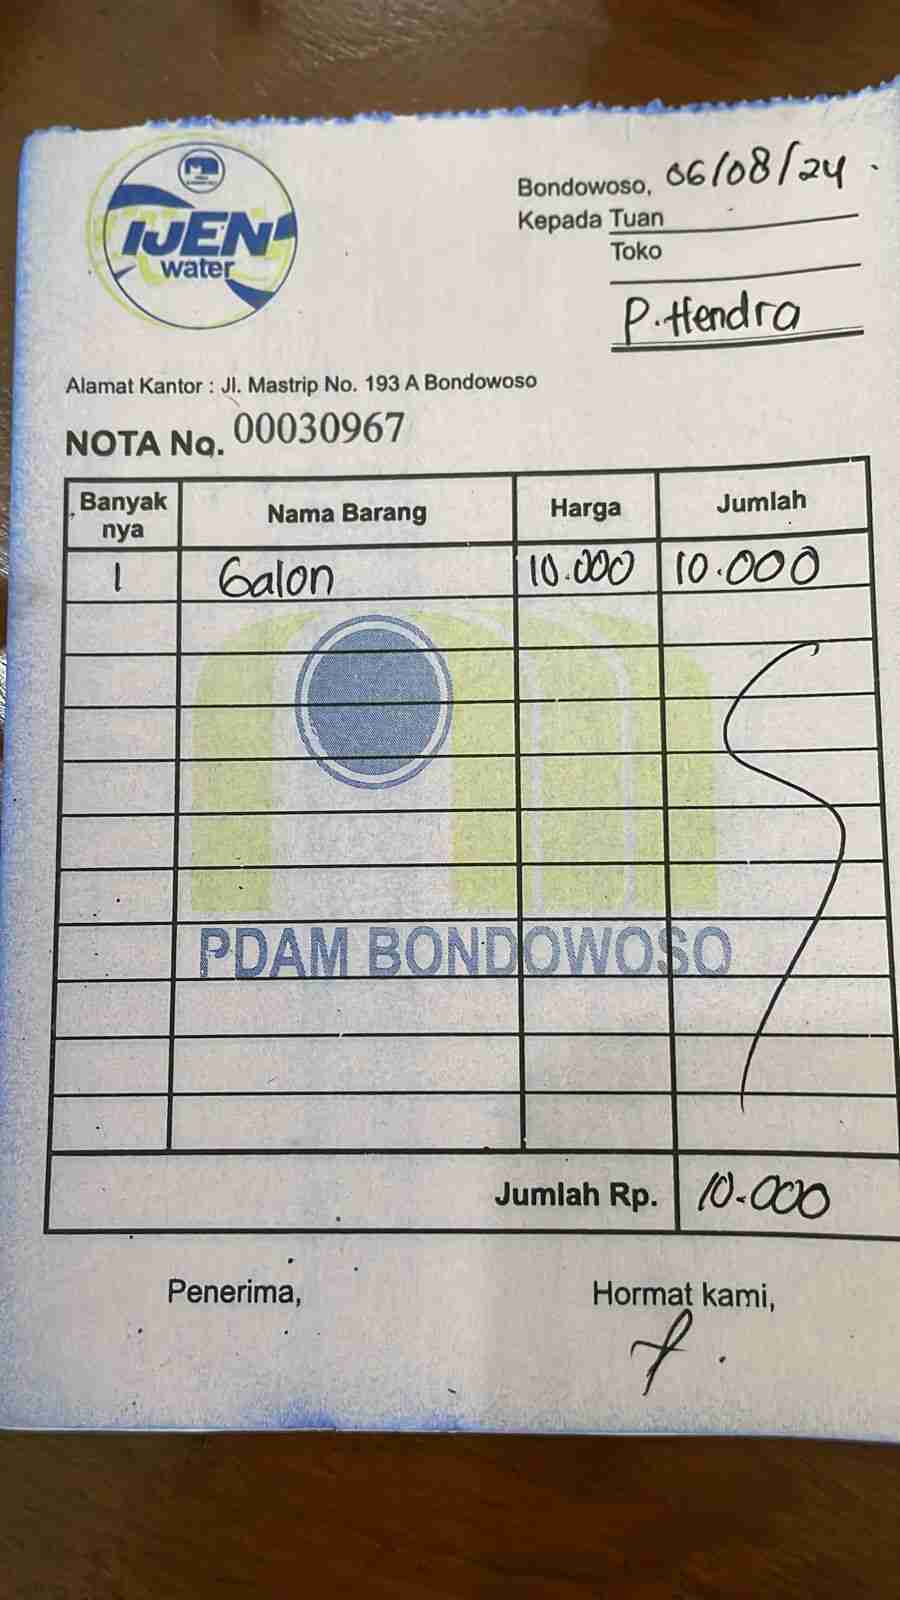 IJEN
water
Bondowoso, 06/08/24
Kepada Tuan
Toko
P. Hendra
Alamat Kantor : Jl. Mastrip No. 193 A Bondowoso
NOTA No. 00030967
Banyak nya Nama Barang Harga Jumlah
1 Galon 10.000 10.000
PDAM BONDOWOSO
Jumlah Rp. 10.000
Penerima, Hormat kami,